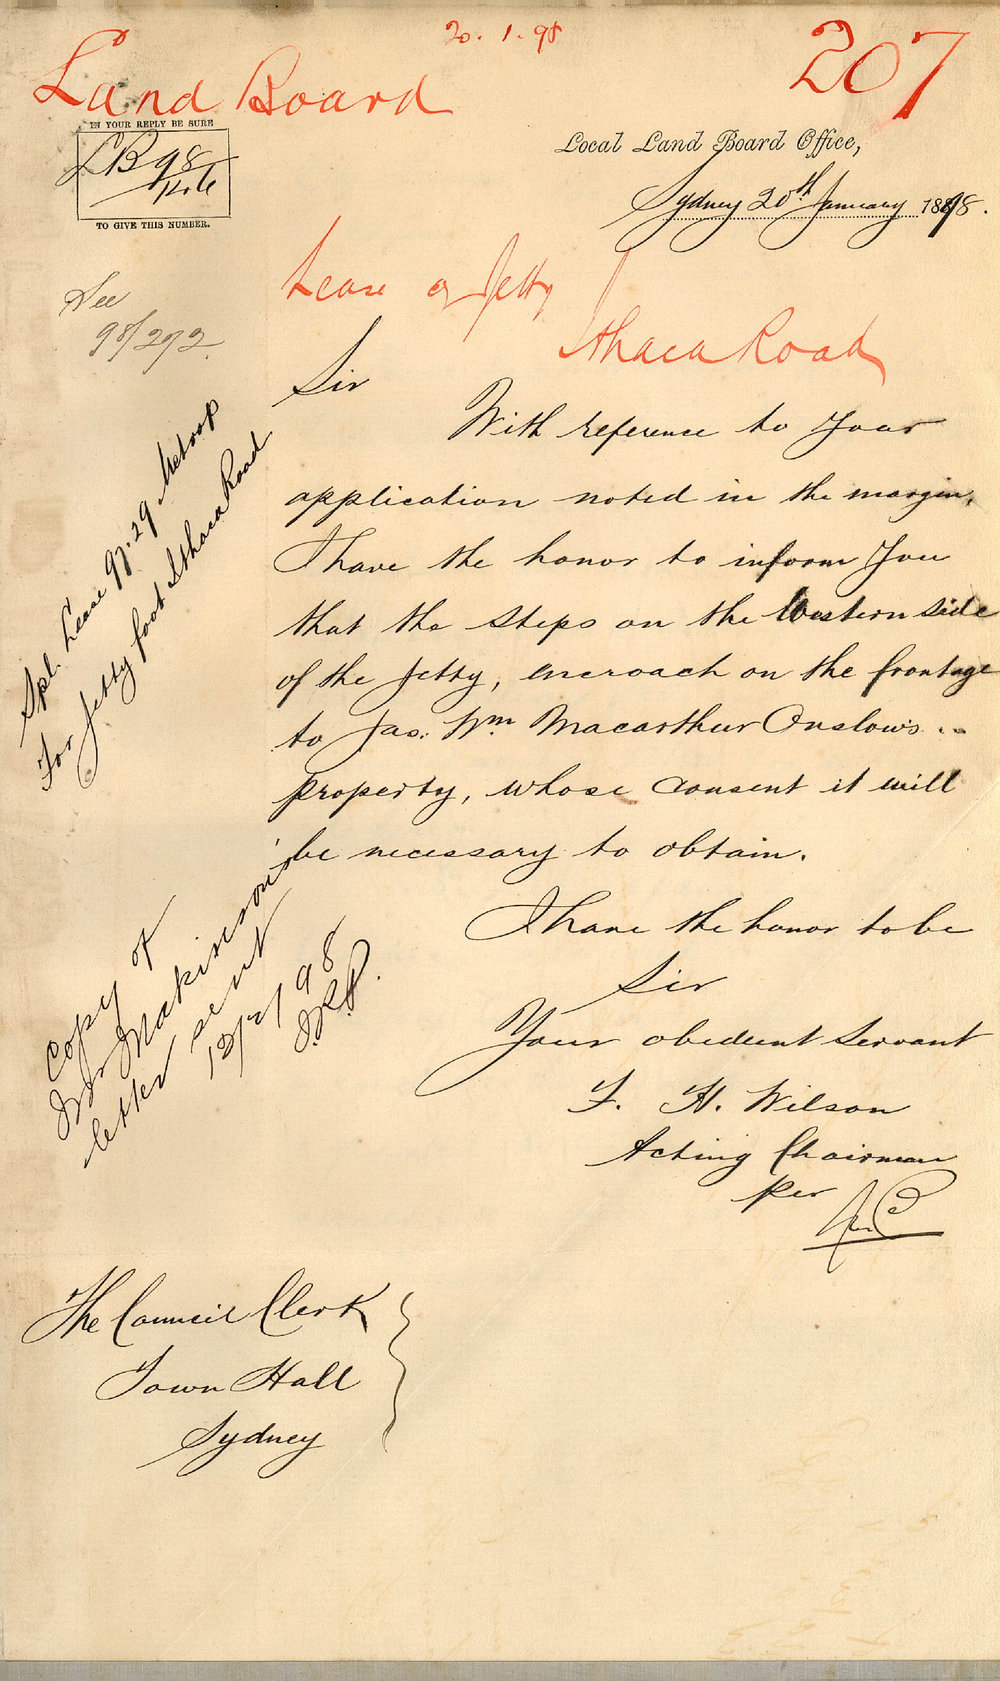 20.1.98
207
Land Board
IN YOUR REPLY BE SURE
LB 98
TO GIVE THIS NUMBER.
Local Land Board Office,
Sydney 20th January 1898.
See
98/272
Lease of Jetty
Ithaca Road
Spl. Lease 97.29 Metrop
For Jetty foot Ithaca Road
Sir
With reference to Your
application noted in the margin,
I have the honor to inform You
that the steps on the Western side
of the Jetty, encroach on the frontage
to Jas. Wm Macarthur Onslow's
property, whose consent it will
be necessary to obtain.
Copy of
Mr Makinson's
letter sent
12/2/98
I have the honor to be
Sir
Your obedient servant
F. H. Wilson
Acting Chairman
per
The Council Clerk
Town Hall
Sydney